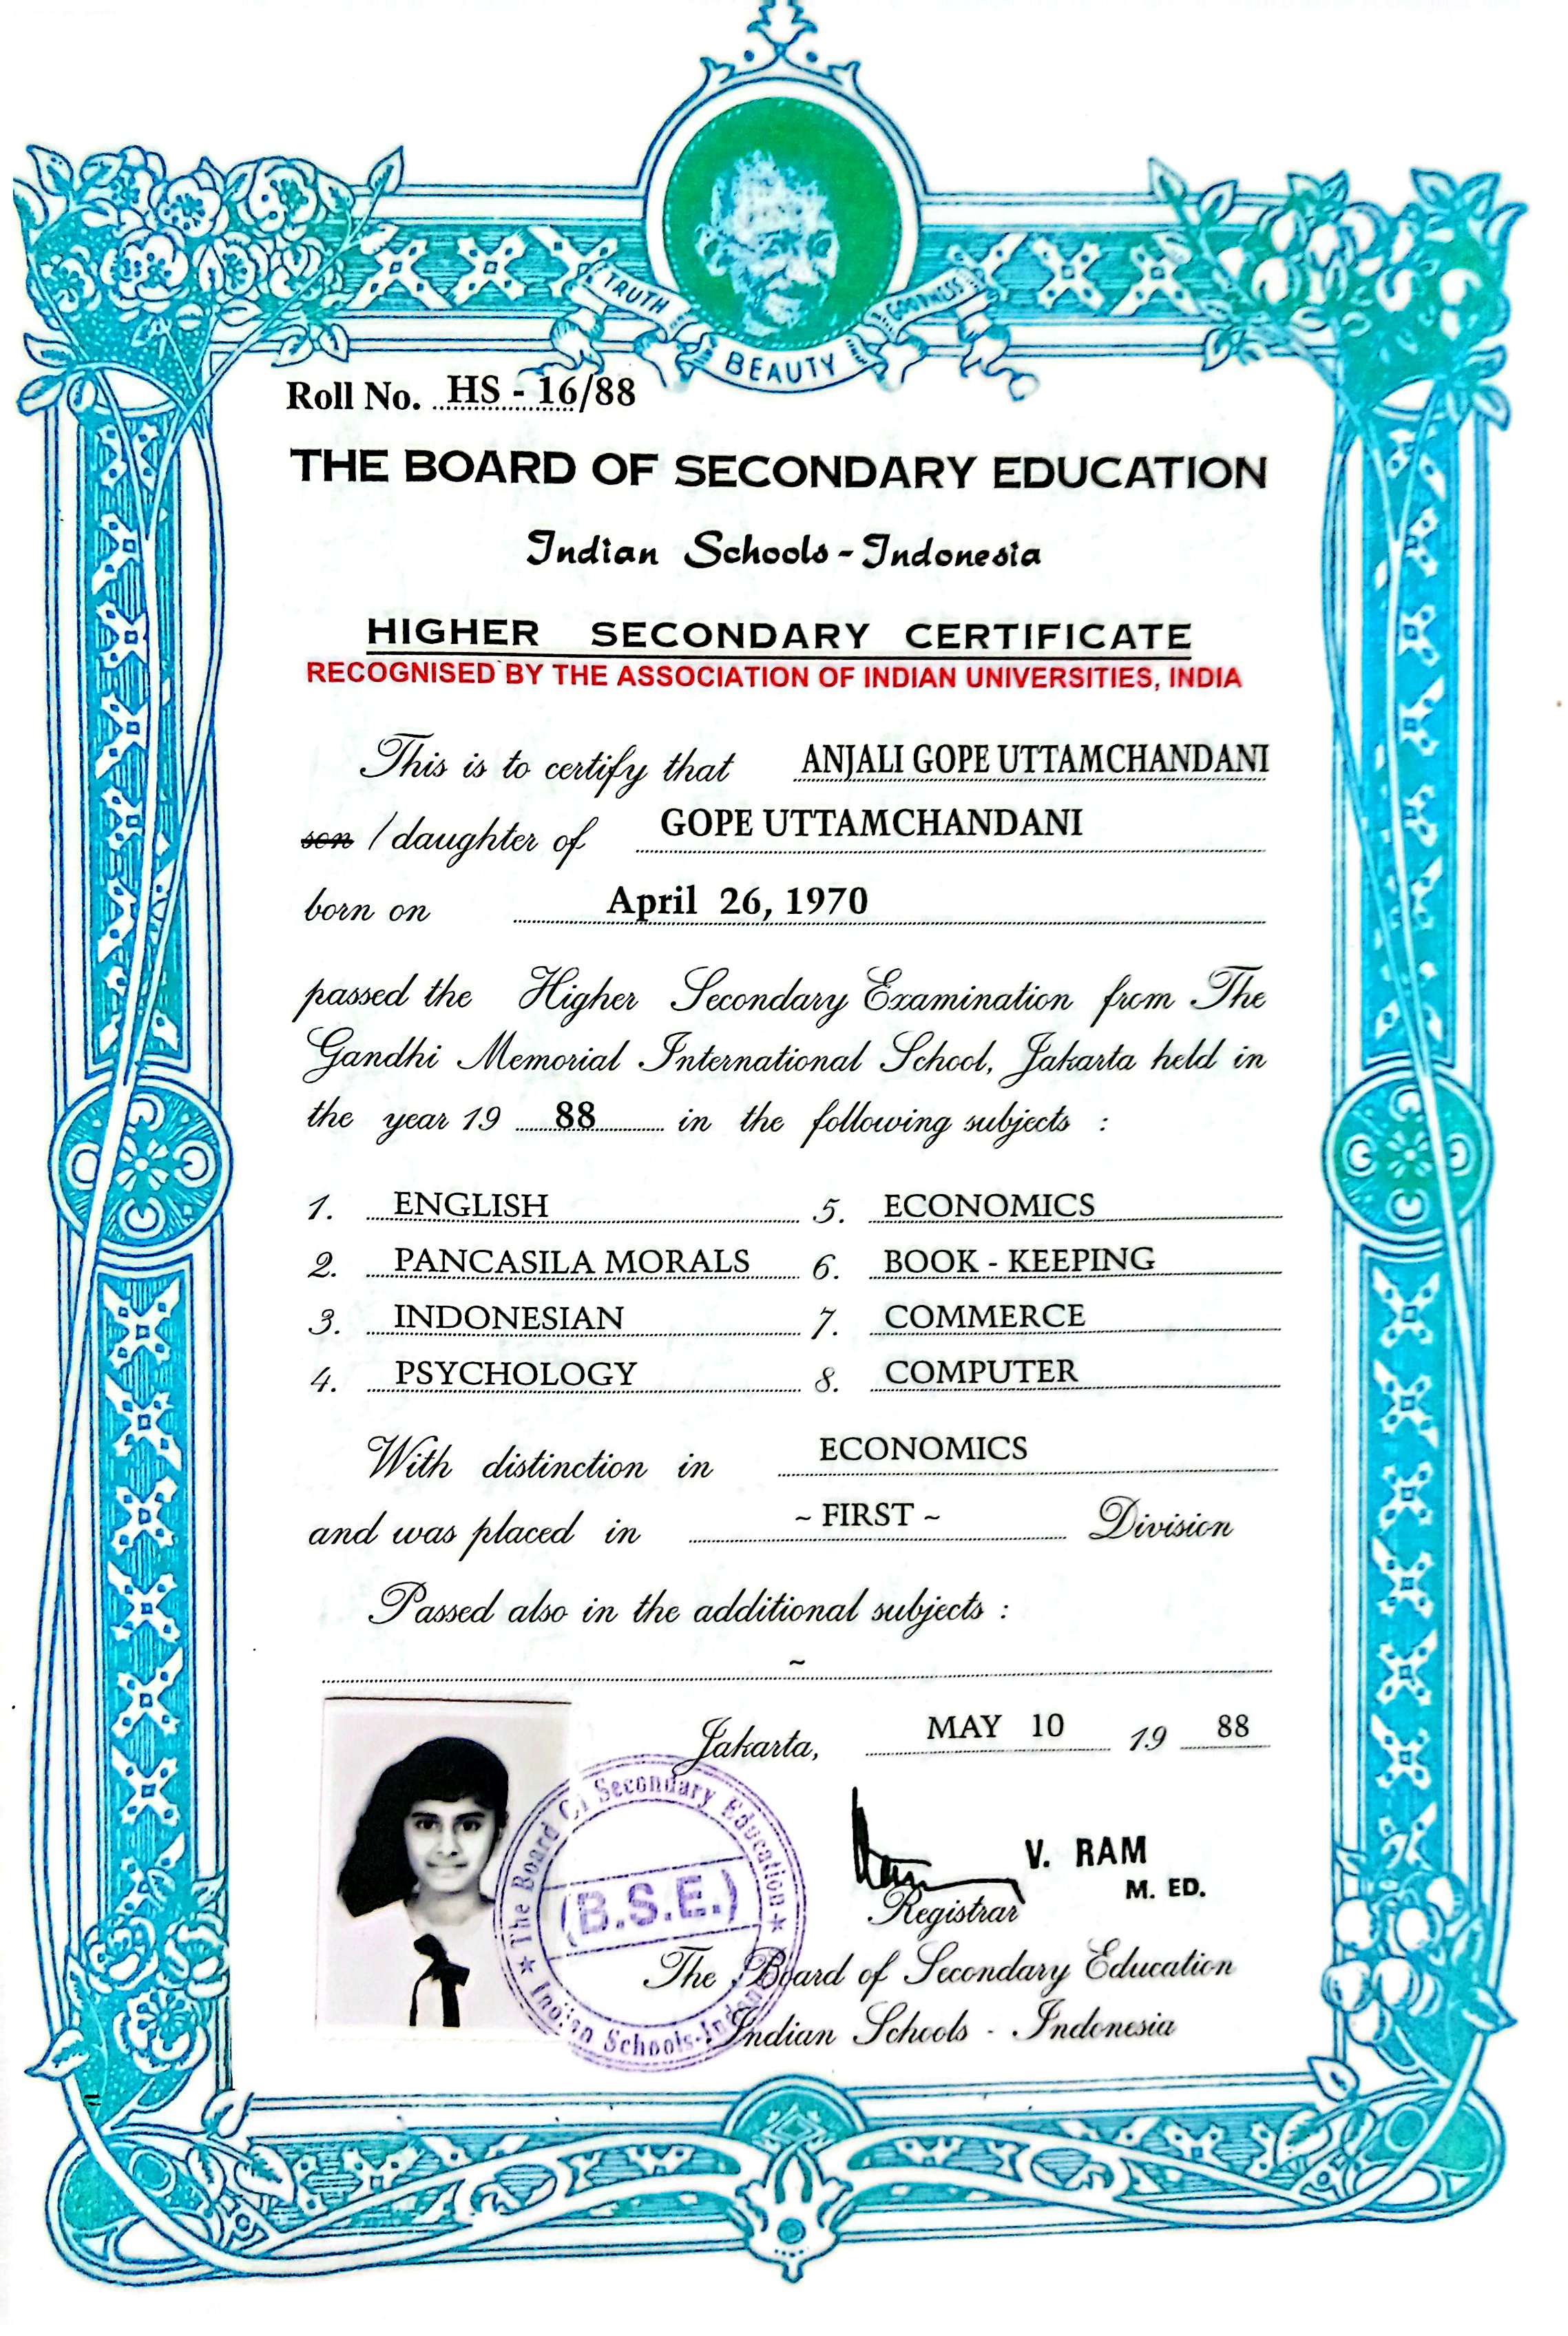 TRUTH BEAUTY GOODNESS
Roll No. HS - 16/88
THE BOARD OF SECONDARY EDUCATION
Indian Schools - Indonesia
HIGHER SECONDARY CERTIFICATE
RECOGNISED BY THE ASSOCIATION OF INDIAN UNIVERSITIES, INDIA
This is to certify that ANJALI GOPE UTTAMCHANDANI
son / daughter of GOPE UTTAMCHANDANI
born on April 26, 1970
passed the Higher Secondary Examination from The
Gandhi Memorial International School, Jakarta held in
the year 19 88 in the following subjects :
1. ENGLISH 5. ECONOMICS
2. PANCASILA MORALS 6. BOOK - KEEPING
3. INDONESIAN 7. COMMERCE
4. PSYCHOLOGY 8. COMPUTER
With distinction in ECONOMICS
and was placed in ~ FIRST ~ Division
Passed also in the additional subjects :
~
Jakarta, MAY 10 19 88
The Board Of Secondary Education
(B.S.E.)
Indian Schools-Indonesia
V. RAM
M. ED.
Registrar
The Board of Secondary Education
Indian Schools - Indonesia